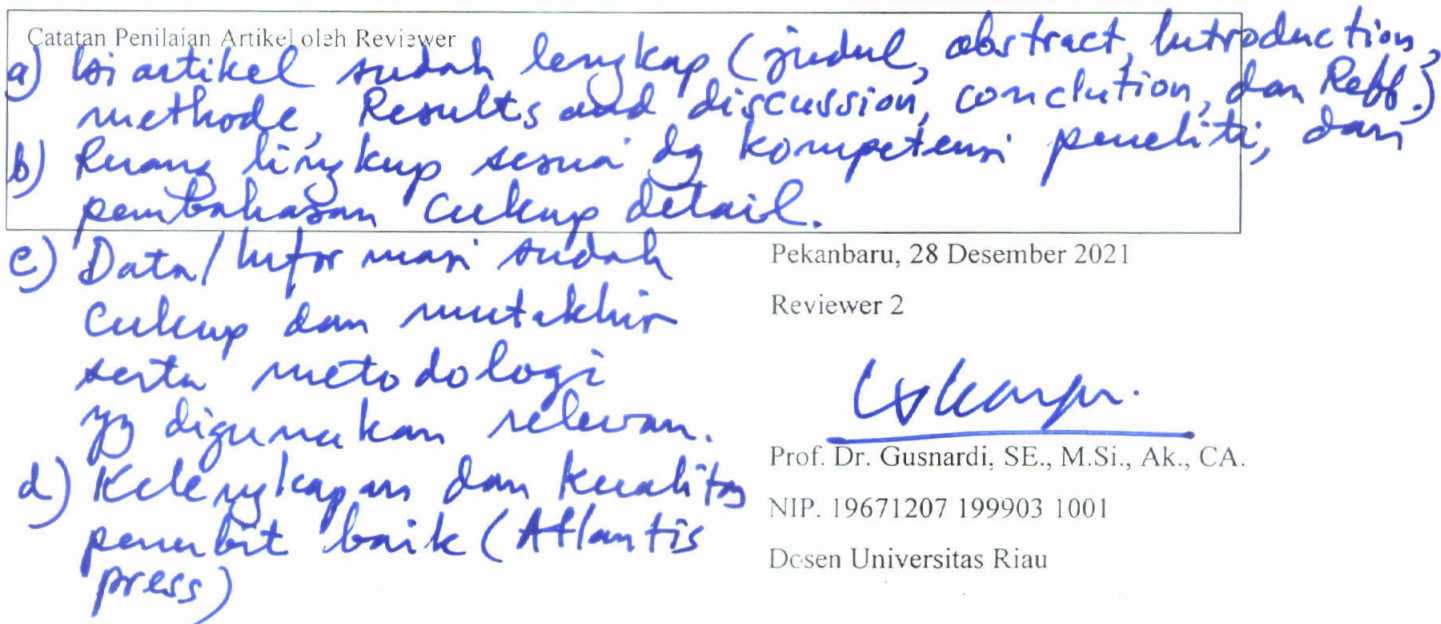 Catatan Penilaian Artikel oleh Reviewer
a) Isi artikel sudah lengkap (judul, abstract, Introduction,
methode, Results and discussion, conclution, dan Reff.)
b) Ruang lingkup sesuai dg kompetensi peneliti, dan
pembahasan cukup detail.
c) Data/Informasi sudah
cukup dan mutakhir
serta metodologi
yg digunakan relevan.
d) Kelengkapan dan kualitas
penerbit baik (Atlantis
press)
Pekanbaru, 28 Desember 2021
Reviewer 2
Prof. Dr. Gusnardi, SE., M.Si., Ak., CA.
NIP. 19671207 199903 1001
Dosen Universitas Riau